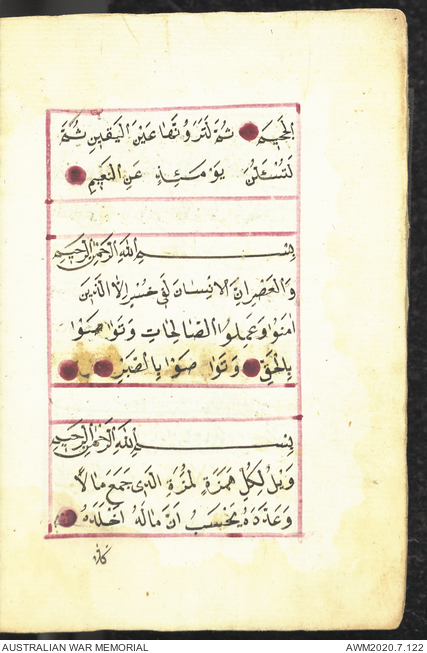 الجحيم ثم لترونها عين اليقين ثم
لتسئلن يومئذ عن النعيم
بسم الله الرحمن الرحيم
والعصر ان الانسان لفى خسر الا الذين
امنوا وعملوا الصالحات وتواصوا
بالحق وتواصوا بالصبر
بسم الله الرحمن الرحيم
ويل لكل همزة لمزة الذى جمع مالا
وعدده يحسب ان ماله اخلده
كلا
AUSTRALIAN WAR MEMORIAL
AWM2020.7.122